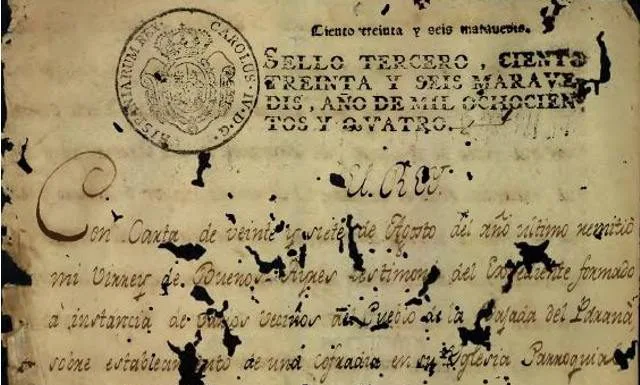 Ciento treinta y seis maravedis.
HISPANIARUM REX CAROLUS IV D G
SELLO TERCERO, CIENTO
TREINTA Y SEIS MARAVE-
DIS, AÑO DE MIL OCHOCIEN-
TOS Y QVATRO.
El REY.
Con Carta de veinte y siete de Agosto del año ultimo remitió
mi Virrey de Buenos Ayres testimonio del Expediente formado
á instancia de varios Vecinos del Pueblo de la Bajada del Paraná
sobre establecimiento de una cofradia en su Yglesia Parroquial